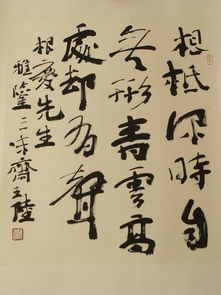 根柢深時自
无形青雲高
處却有聲
根發先生
雅鑒三味齋主陸